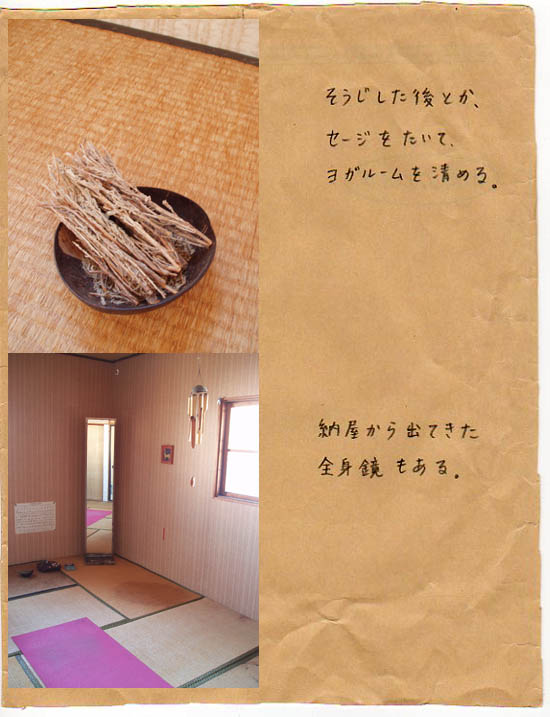 そうじした後とか、
セージをたいて、
ヨガルームを清める。
納屋から出てきた
全身鏡もある。